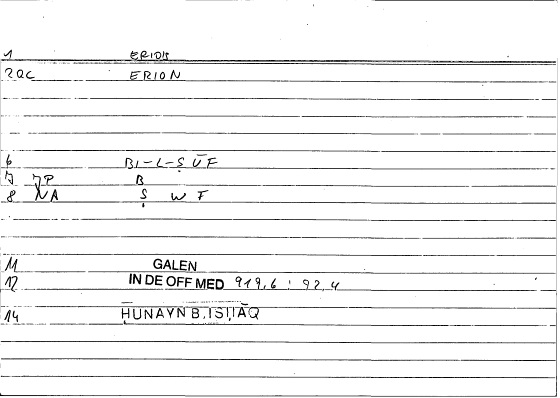 1 ERION
2QC ERION
6 BI-L-ṢŪF
7 JP B
8 NA Ṣ W F
11 GALEN
12 IN DE OFF MED 919,6 : 92,4
14 ḤUNAYN B.ISḤĀQ